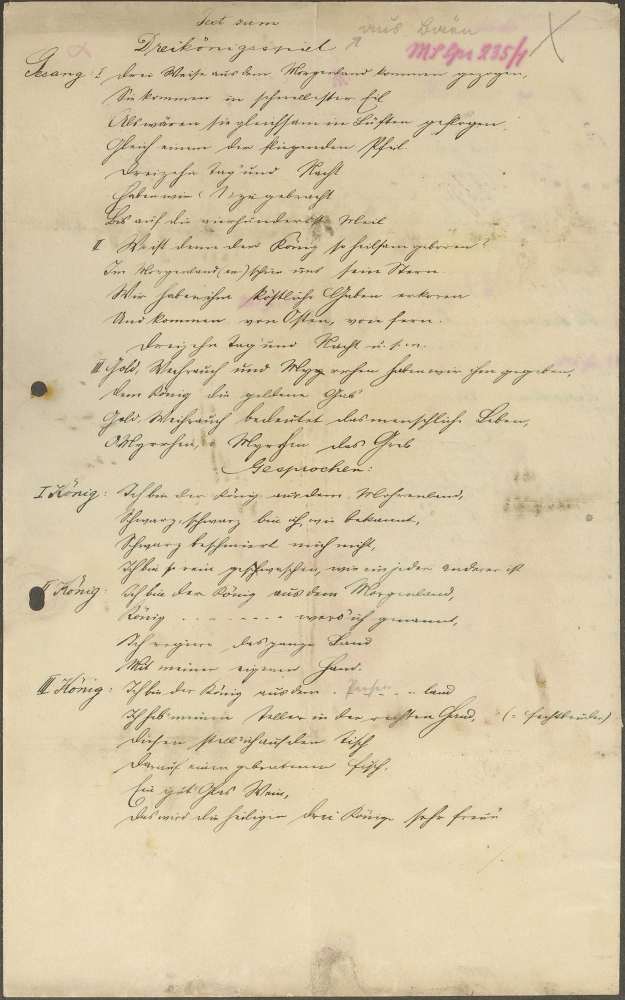 Text zum
Dreikönigsspiel aus
MS Spr 235/1
Gesang: I Drei Weise aus dem Morgenland kommen gezogen,
Sie kommen in schnellster Eil
Als wären sie gleichsam in Lüften geflogen,
Gleich einem der fliegenden Pfeil
Dreizehn Tag und Nacht
Haben wir zugebracht
Bis auf die vierhundertste Meil
II Weist denn der König so heilsam geboren?
Im Morgenland (er)schien uns sein Stern
Wir haben ihm köstliche Gaben erkoren
Und kommen von Osten, von fern.
Dreizehn Tag und Nacht u.s.w.
III Gold, Weihrauch und Myrrhen haben wir ihm gegeben,
Dem König die goldene Gab
Gold, Weihrauch bedeutet das menschliche Leben,
O Myrrhen, o Myrrhen das Grab
Gesprochen:
I König: Ich bin der König aus dem Mohrenland,
Schwarz, schwarz bin ich, wie bekannt,
Schwarz beschmiert mich nicht,
Ich bin so rein gewaschen, wie ein jeder anderer ist
II König: Ich bin der König aus dem Morgenland,
König . . . . . . . werd ich genannt,
Ich regiere das ganze Land
Mit meiner eigenen Hand.
III König: Ich bin der König aus dem . Perser . . land
Ich hab meinen Teller in der rechten Hand,
Diesen stell ich auf den Tisch
Darauf einen gebratenen Fisch.
Ein gut Glas Wein,
Das wird die heiligen drei Könige sehr freun